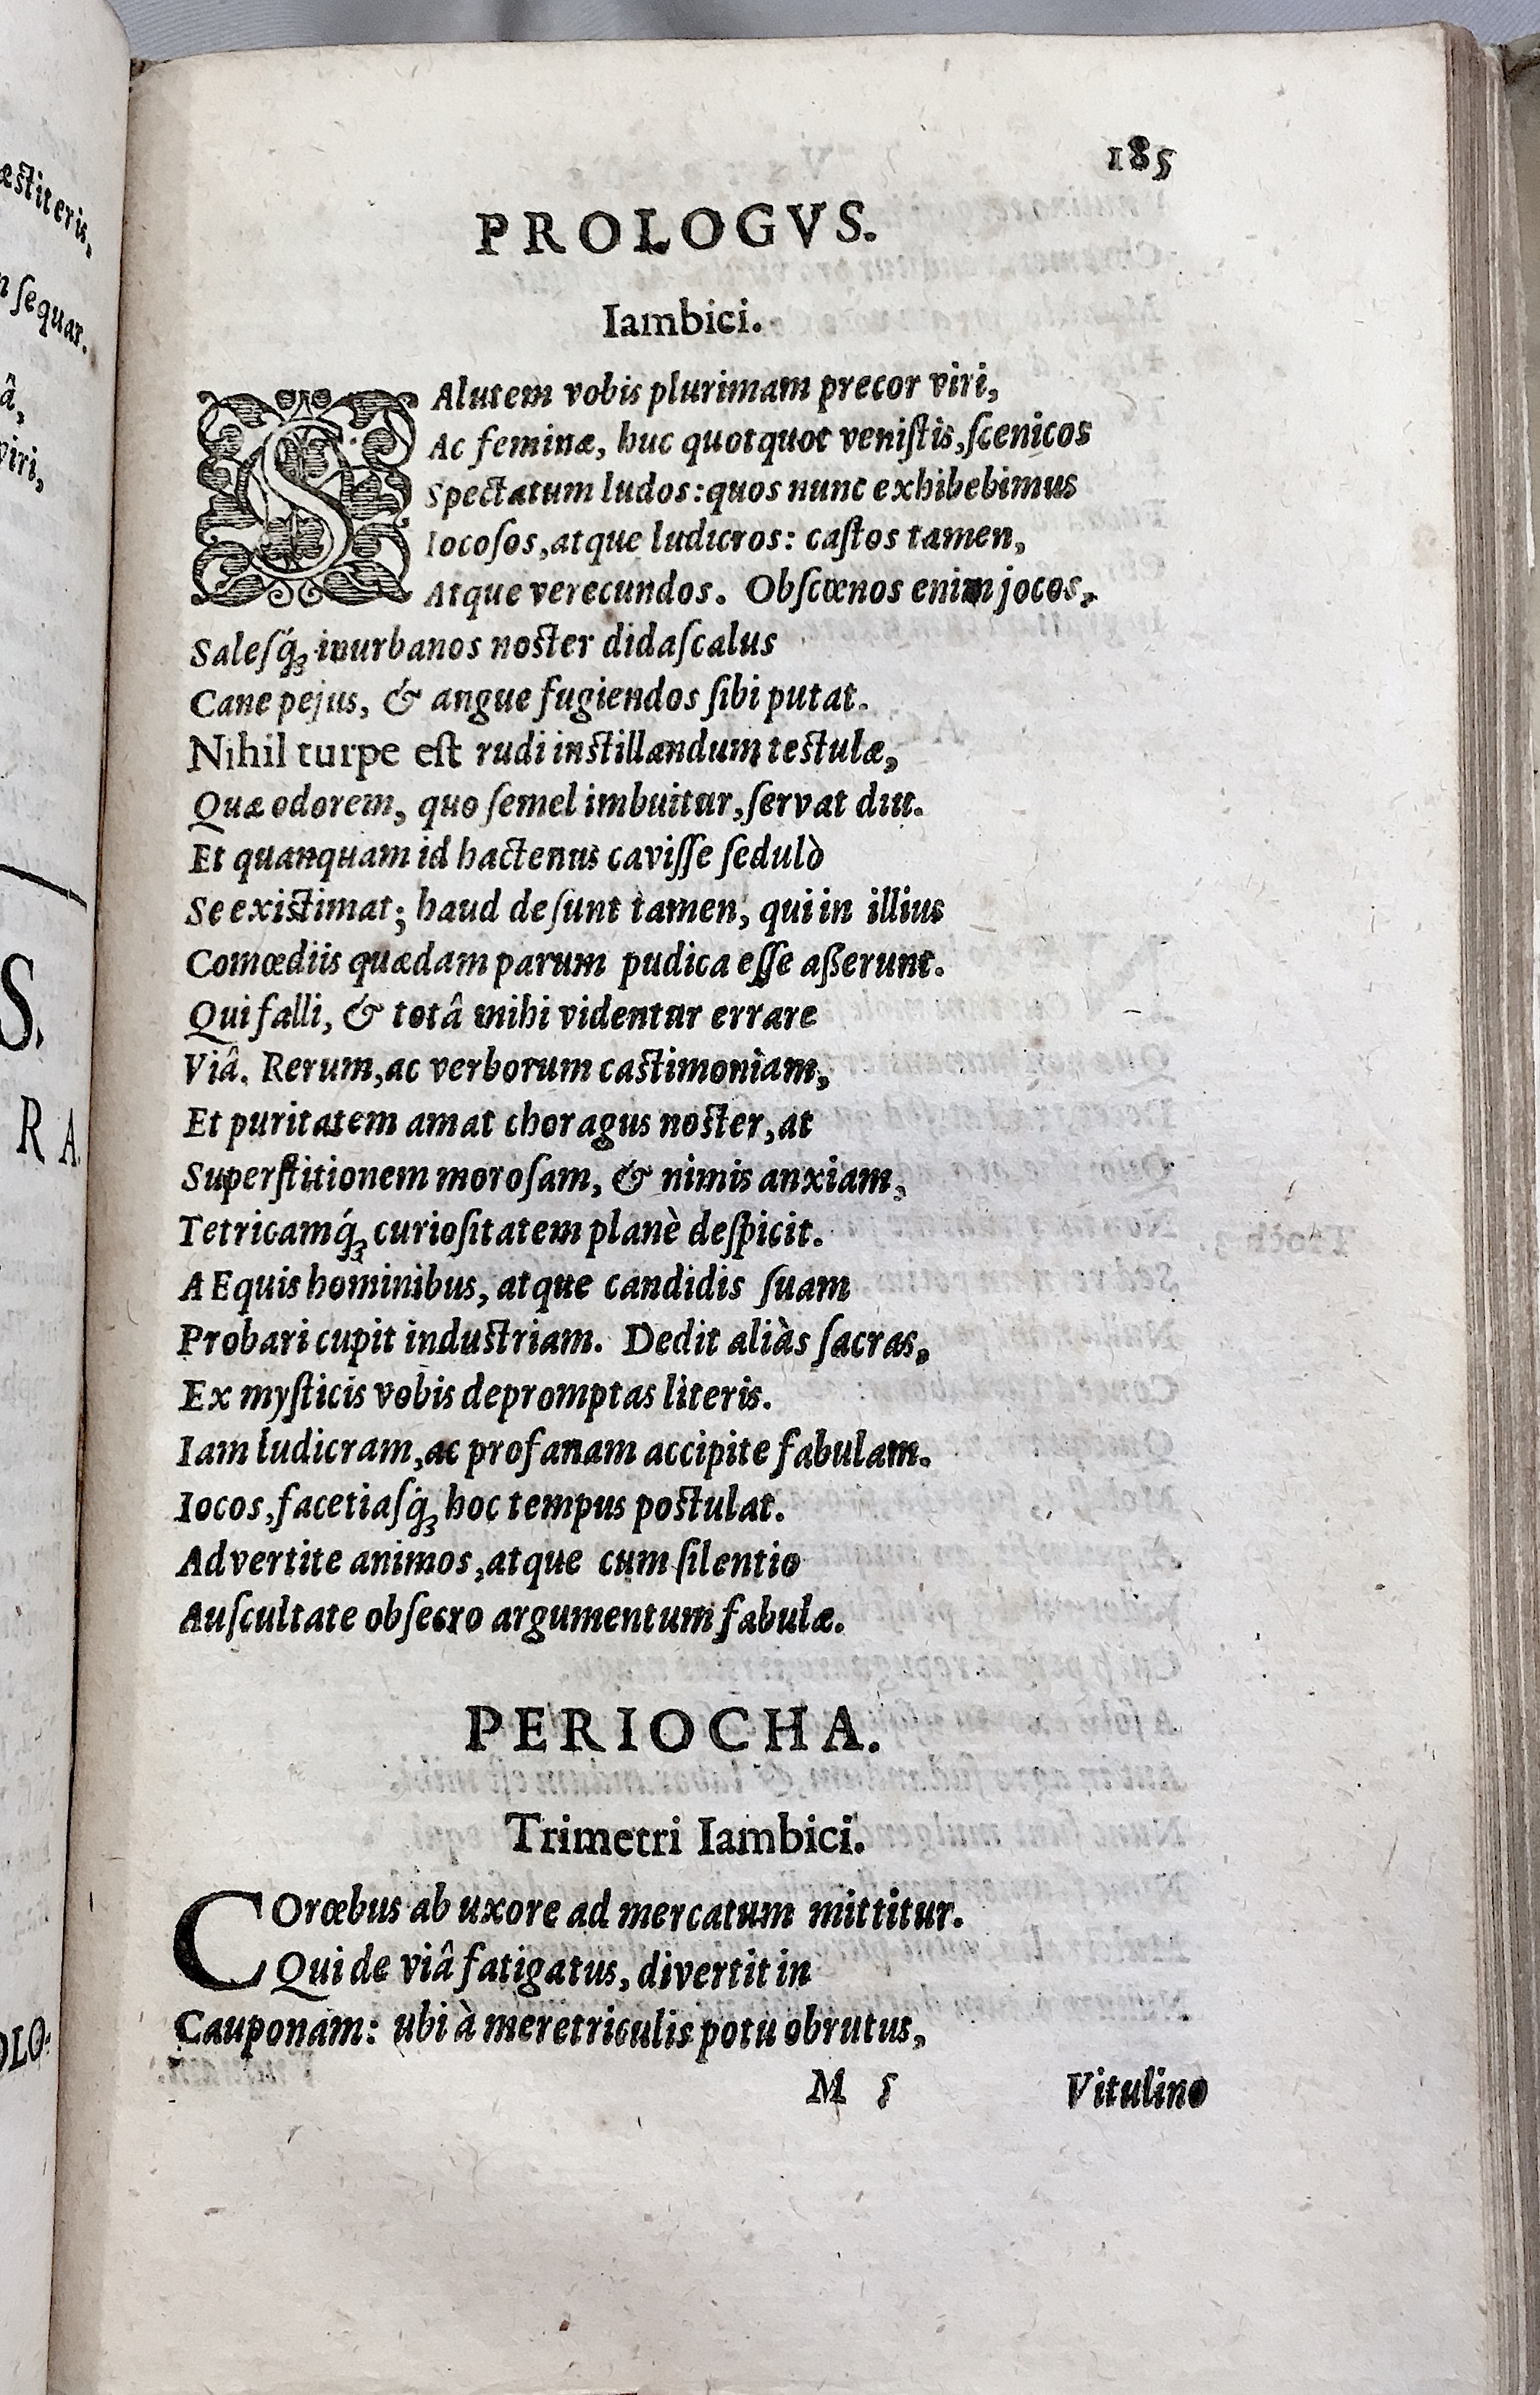 æstiteris,
sequar.
â,
viri,
S.
R A
OLO-
185
PROLOGVS.
Iambici.
SAlutem vobis plurimam precor viri,
Ac feminæ, huc quotquot veniſtis,ſcenicos
Spectatum ludos:quos nunc exhibebimus
Iocoſos,atque ludicros: caſtos tamen,
Atque verecundos. Obſcœnos enim jocos,
Saleſq́ꝫ inurbanos noſter didaſcalus
Cane pejus, & angue fugiendos ſibi putat.
Nihil turpe eſt rudi inſtillandum teſtulæ,
Quæ odorem, quo ſemel imbuitur,ſervat diu.
Et quanquam id hactenus caviſſe ſedulò
Se exiſtimat; haud deſunt tamen, qui in illius
Comœdiis quædam parum pudica eſſe aßerunt.
Qui falli, & totâ mihi videntur errare
Viâ. Rerum,ac verborum caſtimoniam,
Et puritatem amat choragus noſter,at
Superſtitionem moroſam, & nimis anxiam,
Tetricamq́ꝫ curioſitatem planè deſpicit.
AEquis hominibus, atque candidis ſuam
Probari cupit induſtriam. Dedit aliàs ſacras,
Ex myſticis vobis depromptas literis.
Iam ludicram,ac profanam accipite fabulam.
Iocos,facetiaſq́ꝫ hoc tempus poſtulat.
Advertite animos,atque cum ſilentio
Auſcultate obſecro argumentum fabulæ.
PERIOCHA.
Trimetri Iambici.
COrœbus ab uxore ad mercatum mittitur.
Qui de viâ fatigatus, divertit in
Cauponam: ubi à meretriculis potu obrutus,
M 5 Vitulino